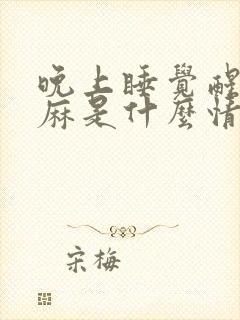 晚上睡覺醒
麻是什麼情
宋梅